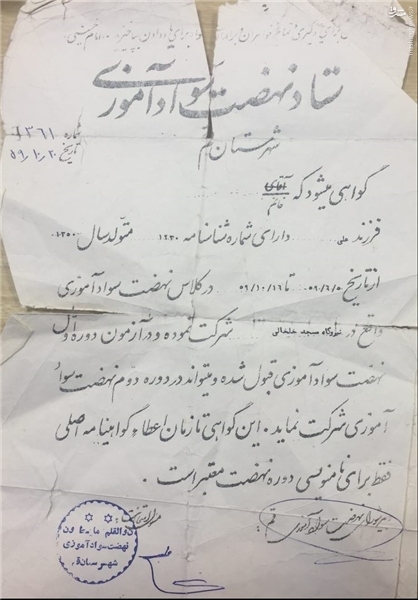 ستاد نهضت سوادآموزی
شهرستان قم
شماره ۱۳۶۱
تاریخ ۵۹/۱۰/۲۰
گواهی میشود که آقای خانم
فرزند علی دارای شماره شناسنامه ۱۲۳۰ متولد سال ۱۳۵۰
از تاریخ ۵۹/۶/۵ تا ۵۹/۱۰/۱۶ در کلاس نهضت سوادآموزی
واقع در مسجد خلخالی شرکت نموده و در آزمون دوره اول
نهضت سوادآموزی قبول شده و میتواند در دوره دوم نهضت سواد
آموزی شرکت نماید. این گواهی تا زمان اعطاء گواهینامه اصلی
فقط برای نامنویسی دوره نهضت معتبر است.
شورای نهضت سوادآموزی قم
ن والقلم و ما یسطرون
نهضت سوادآموزی
شهرستان قم